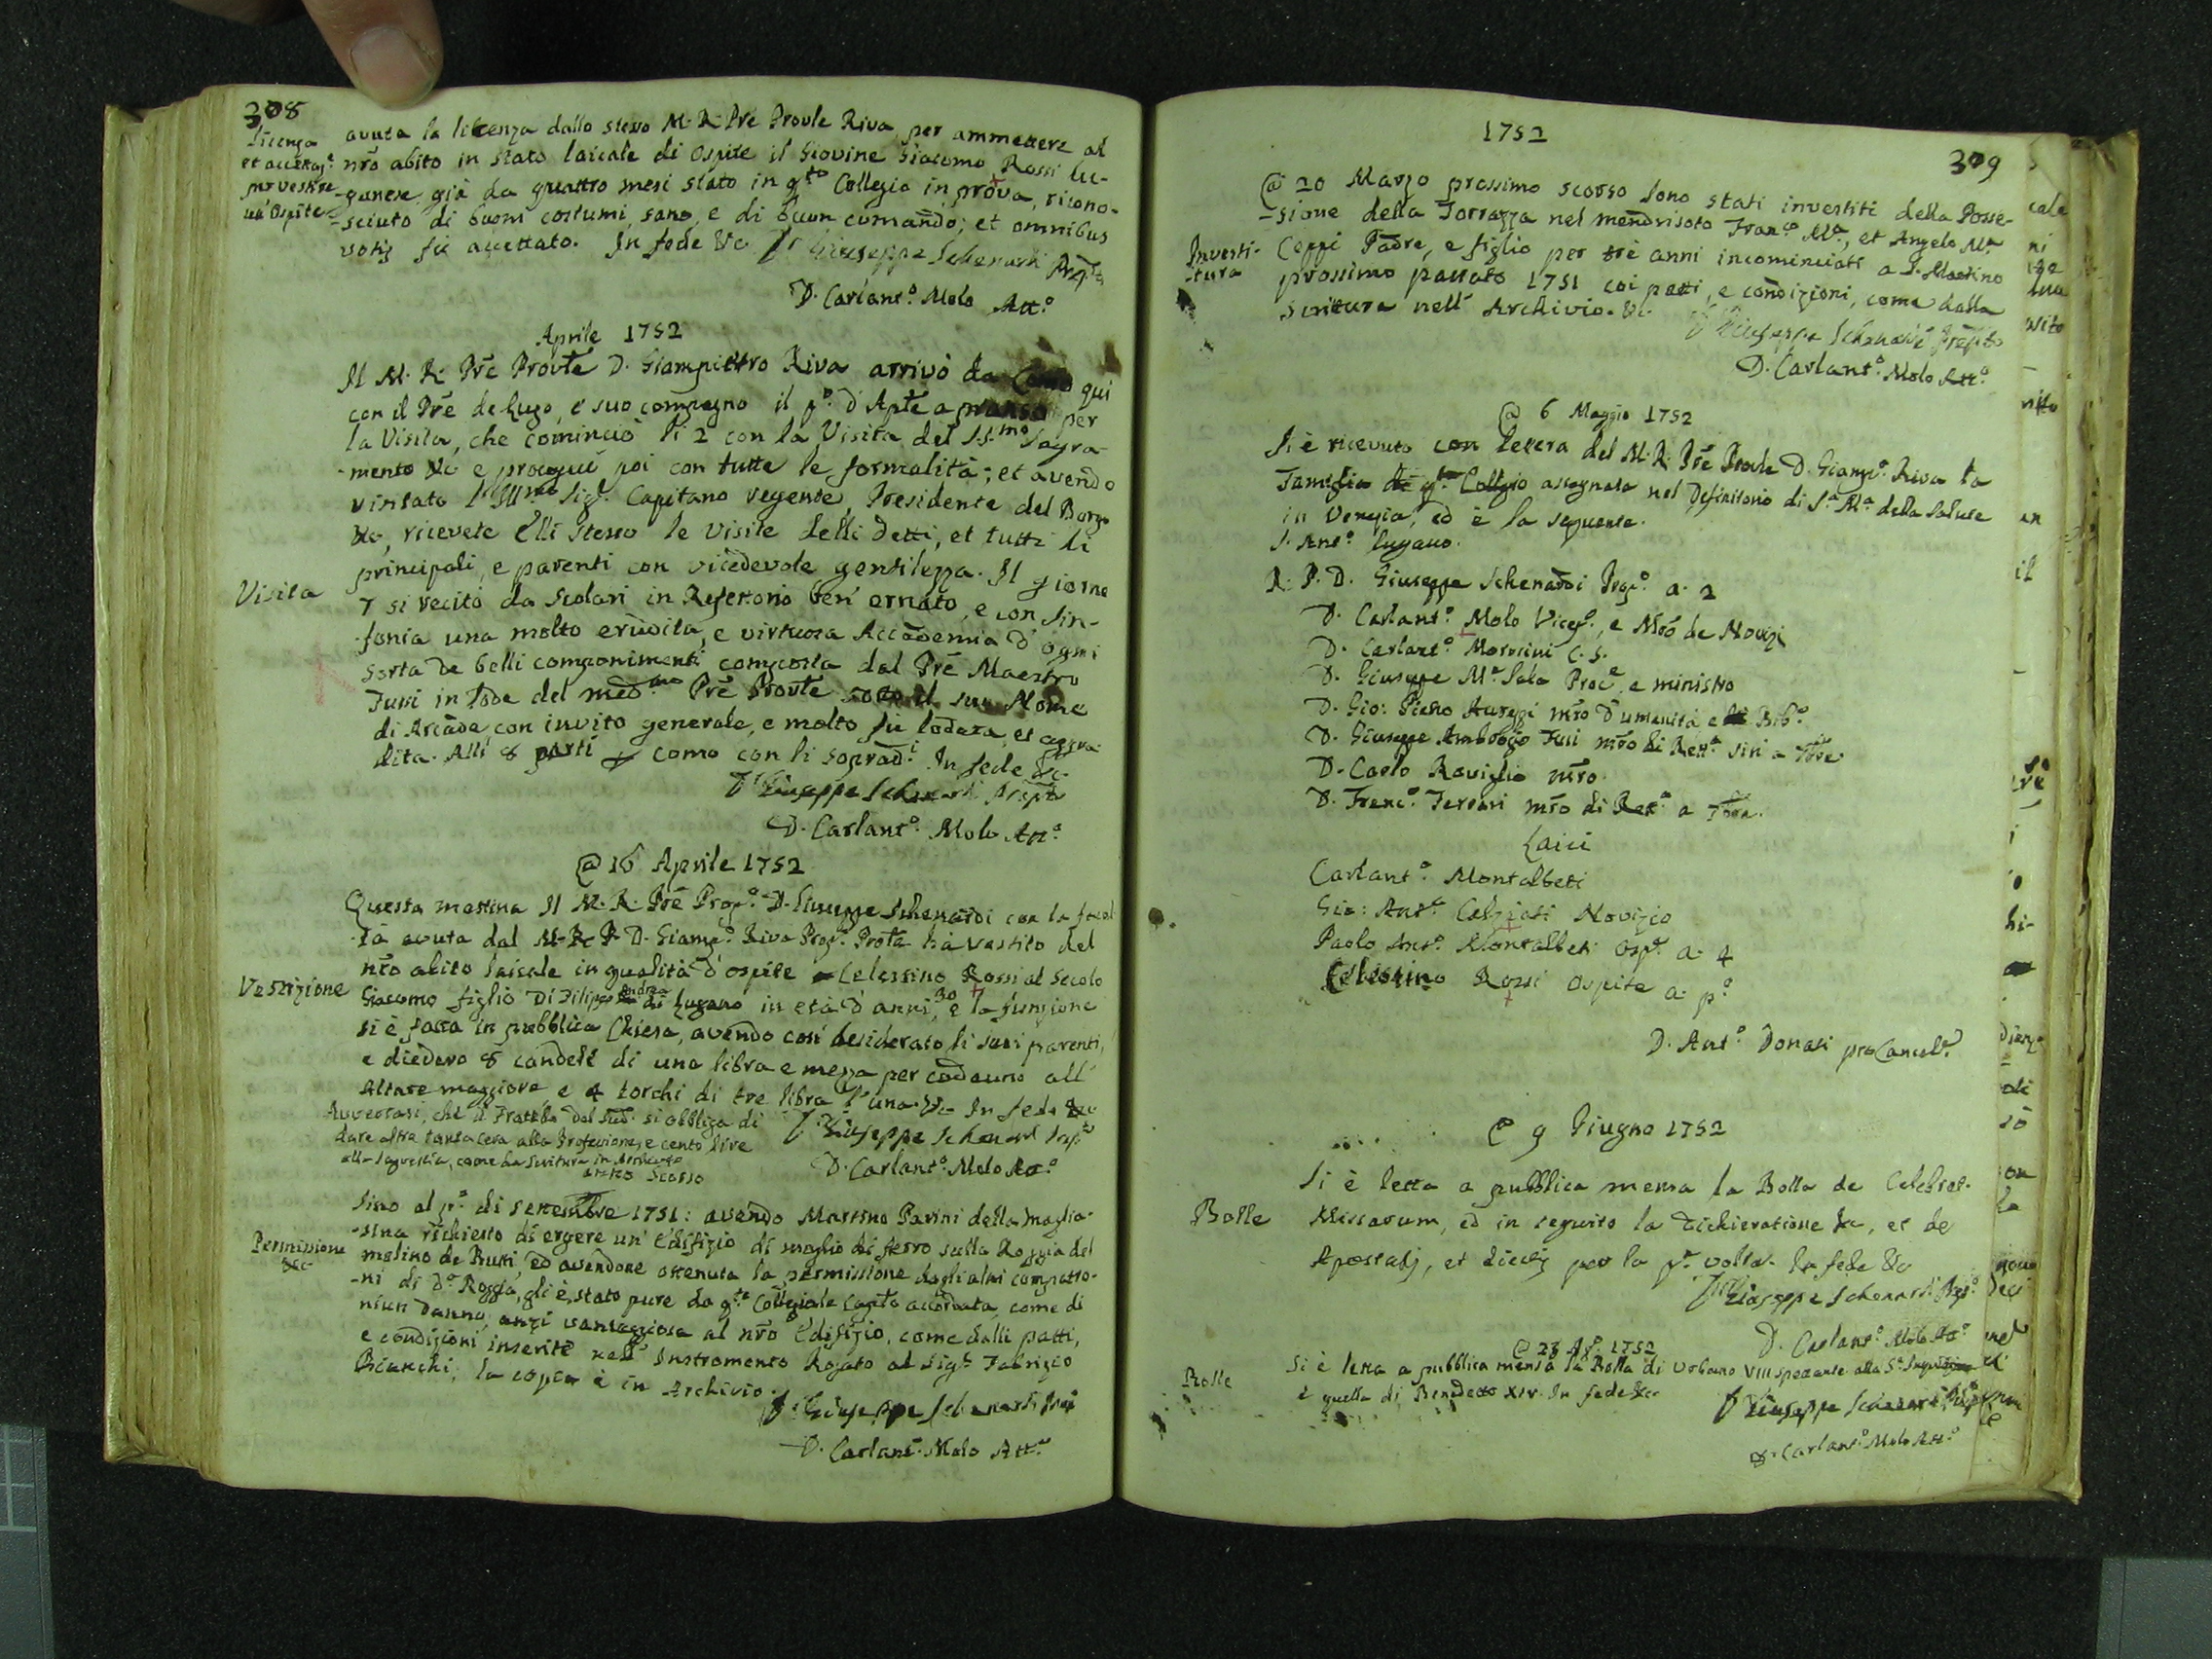 308
licenza
et accettaz.e
per vestire
un' Ospite
avuta la licenza dallo stesso M. R. Pre Provle Riva, per ammettere al
nro abito in stato laicale di Ospite il Giovine Giacomo Rossi lu-
-ganese già da quattro mesi stato in q.to Collegio in prova, ricono-
-sciuto di buoni costumi, sano, e di buon comando; et omnibus
votis fù accettato. In fede &c D. Giuseppe Schenardi Prep.to
D. Carlant.o Molo Att.o
Aprile 1752
Il M. R. Pre Provle D. Giampietro Riva arrivò da Como qui
con il Pre de Lugo, e suo compagno il p.o d' Aple a pranso per
la Visita, che cominciò li 2 con la Visita del S.S.mo Sagra-
-mento &c e proseguì poi con tutte le formalità; et avendo
visitato l' Ill.mo Sig.r Capitano regente, Presidente del Borgo
&c, ricevete Elli stesso le visite delli detti, et tutti li
principali, e parenti con vicedevole gentilezza. Il giorno
Visita
7 si recitò da Scolari in Refettorio ben' ornato, e con Sin-
-fonia una molto erudita, e virtuosa Accademia d' ogni
sorta de belli componimenti composta dal Pre Maestro
Fusi in lode del med.mo Pre Provle sotto il suo Nome
di Arcade, con invito generale, e molto fù lodata, et aggra-
dita. Alli 8 partì p Como con li soprad.i In fede &c
D. Giuseppe Schenardi Prep.to
D. Carlant.o Molo Att.o
@ 16 Aprile 1752
Questa mattina Il M. R. Pre Prop.o D. Giuseppe Schenardi con la facol
-tà avuta dal M. R. P. D. Giamp.o Riva Prep.o Prole hà vestito del
nro abito laicale in qualità d' ospite Celestino Rossi al Secolo
Vestizione
Giacomo figlio di Filippo Andrea di Lugano in età d' anni 30, e la funzione
si è fatta in pubblica Chiesa, avendo così desiderato li suoi parenti,
e diedero 8 candele di una libra e mezza per cadauno all'
Altare maggiore, e 4 torchi di tre libra l' una. &c In fede &c
Avvertasi, che il Fratello del sud.o si obbliga di
dare altra tanta cera alla Professione, e cento lire
alla Sagrestia, come da Scrittura in Archivio
D. Giuseppe Schenardi Prep.to
D. Carlant.o Molo Att.o
anno scorso
Sino al p.o di settembre 1751: avendo Martino Pavini della Maglia-
-sina richiesto di ergere un' Edifizio di maglio di ferro sulla Roggia del
Permissione
&c
molino de Busti, ed avendone ottenuta la permissione dagli altri compatro-
-ni di d.a Roggia, gli è stato pure da q.to Collegiale Capito accordata, come di
niun danno, anzi vantaggiosa al nro Edifizio, come dalli patti,
e condizioni inserite nell' Instromento Rogato al Sig.r Fabrizio
Bianchi; la copia è in Archivio.
D. Giuseppe Schenardi Prep.
D. Carlant.o Molo Att.o
1752
309
@ 20 Marzo prossimo scorso sono stati investiti della Posse-
-sione della Torrazza nel mendrisoto Fran.o M.a, et Angelo M.a
Investi-
tura
Ceppi Padre, e figlio per trè anni incominciati a S. Martino
prossimo passato 1751 coi patti, e condizioni, come dalla
Scrittura nell' Archivio. &c.
D. Giuseppe Schenardi Prep.to
D. Carlant.o Molo Att.o
@ 6 Maggio 1752
Si è ricevuto con lettera del M. R. Pre Provle D. Giamp.o Riva la
Famiglia di q.to Collegio assegnata nel Definitorio di S.a M.a della Salute
in Venezia, ed è la seguente.
S. Ant.o Lugano.
R. P. D. Giuseppe Schenardi Prep.o a. 2
D. Carlant.o Molo Vicep.o, e Mro de Novizj
D. Carlant.o Morosini C. S.
D. Giuseppe M.a Sala Proc.e, e ministro
D. Gio: Pietro Aureggi mro d' umanità e Bib.o
D. Giuseppe Ambrogio Fusi mro di Rett.a sin' a 7bre
D. Carlo Roviglio mro.
D. Franc.o Ferrari mro di Ret.a a 7bre.
Laici
Carlant.o Montalbeti
Gio: Ant.o Calziati Novizio
Paolo Ant.o Montalbeti Osp.e a. 4
Celestino Rossi Ospite a. p.o
D. Ant.o Donati proCancel.e
@ 9 Giugno 1752
Si è letta a pubblica mensa la Bolla de Celebrat.
Bolle
Missarum, ed in seguito la dichieratione &c, et de
Apostatis, et Eiectis per la p.a volta. In fede &c
D. Giuseppe Schenardi Prep.o
D. Carlant.o Molo Att.o
@ 28 Ag.o 1752
Bolle
Si è letta a pubblica mensa la Bolla di Urbano VIII spettante alla S.a Inquisizione
e quella di Benedetto XIV. In fede &c.
D. Giuseppe Schenardi Prep.o
D. Carlant.o Molo Att.o